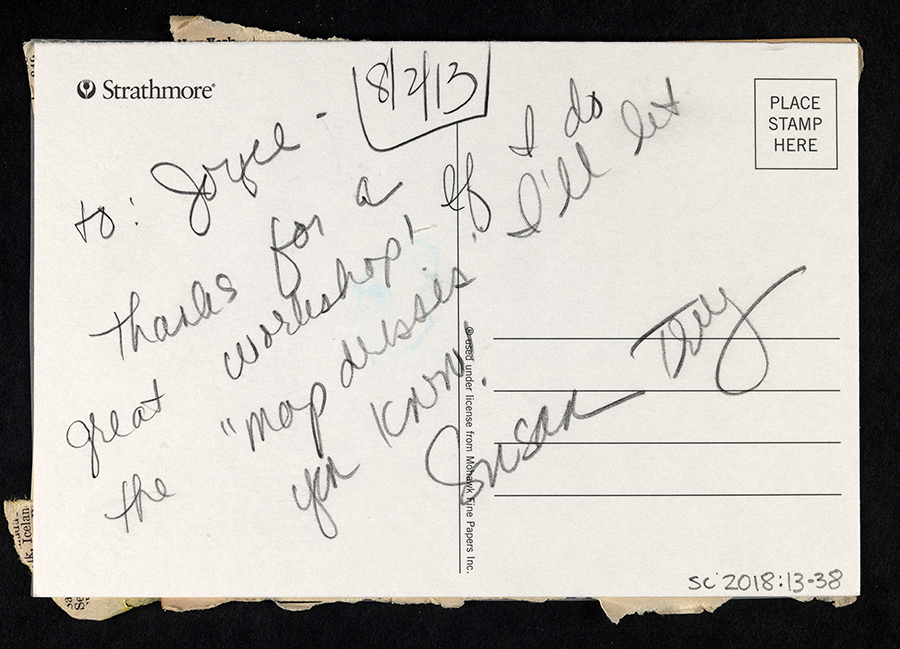 Strathmore®
8/2/13
PLACE
STAMP
HERE
to: Joyce -
Thanks for a
great workshop! If I do
the "map dresses" I'll let
you know.
Susan
© used under license from Mohawk Fine Papers Inc.
SC 2018:13-38
New York
k, Icelan